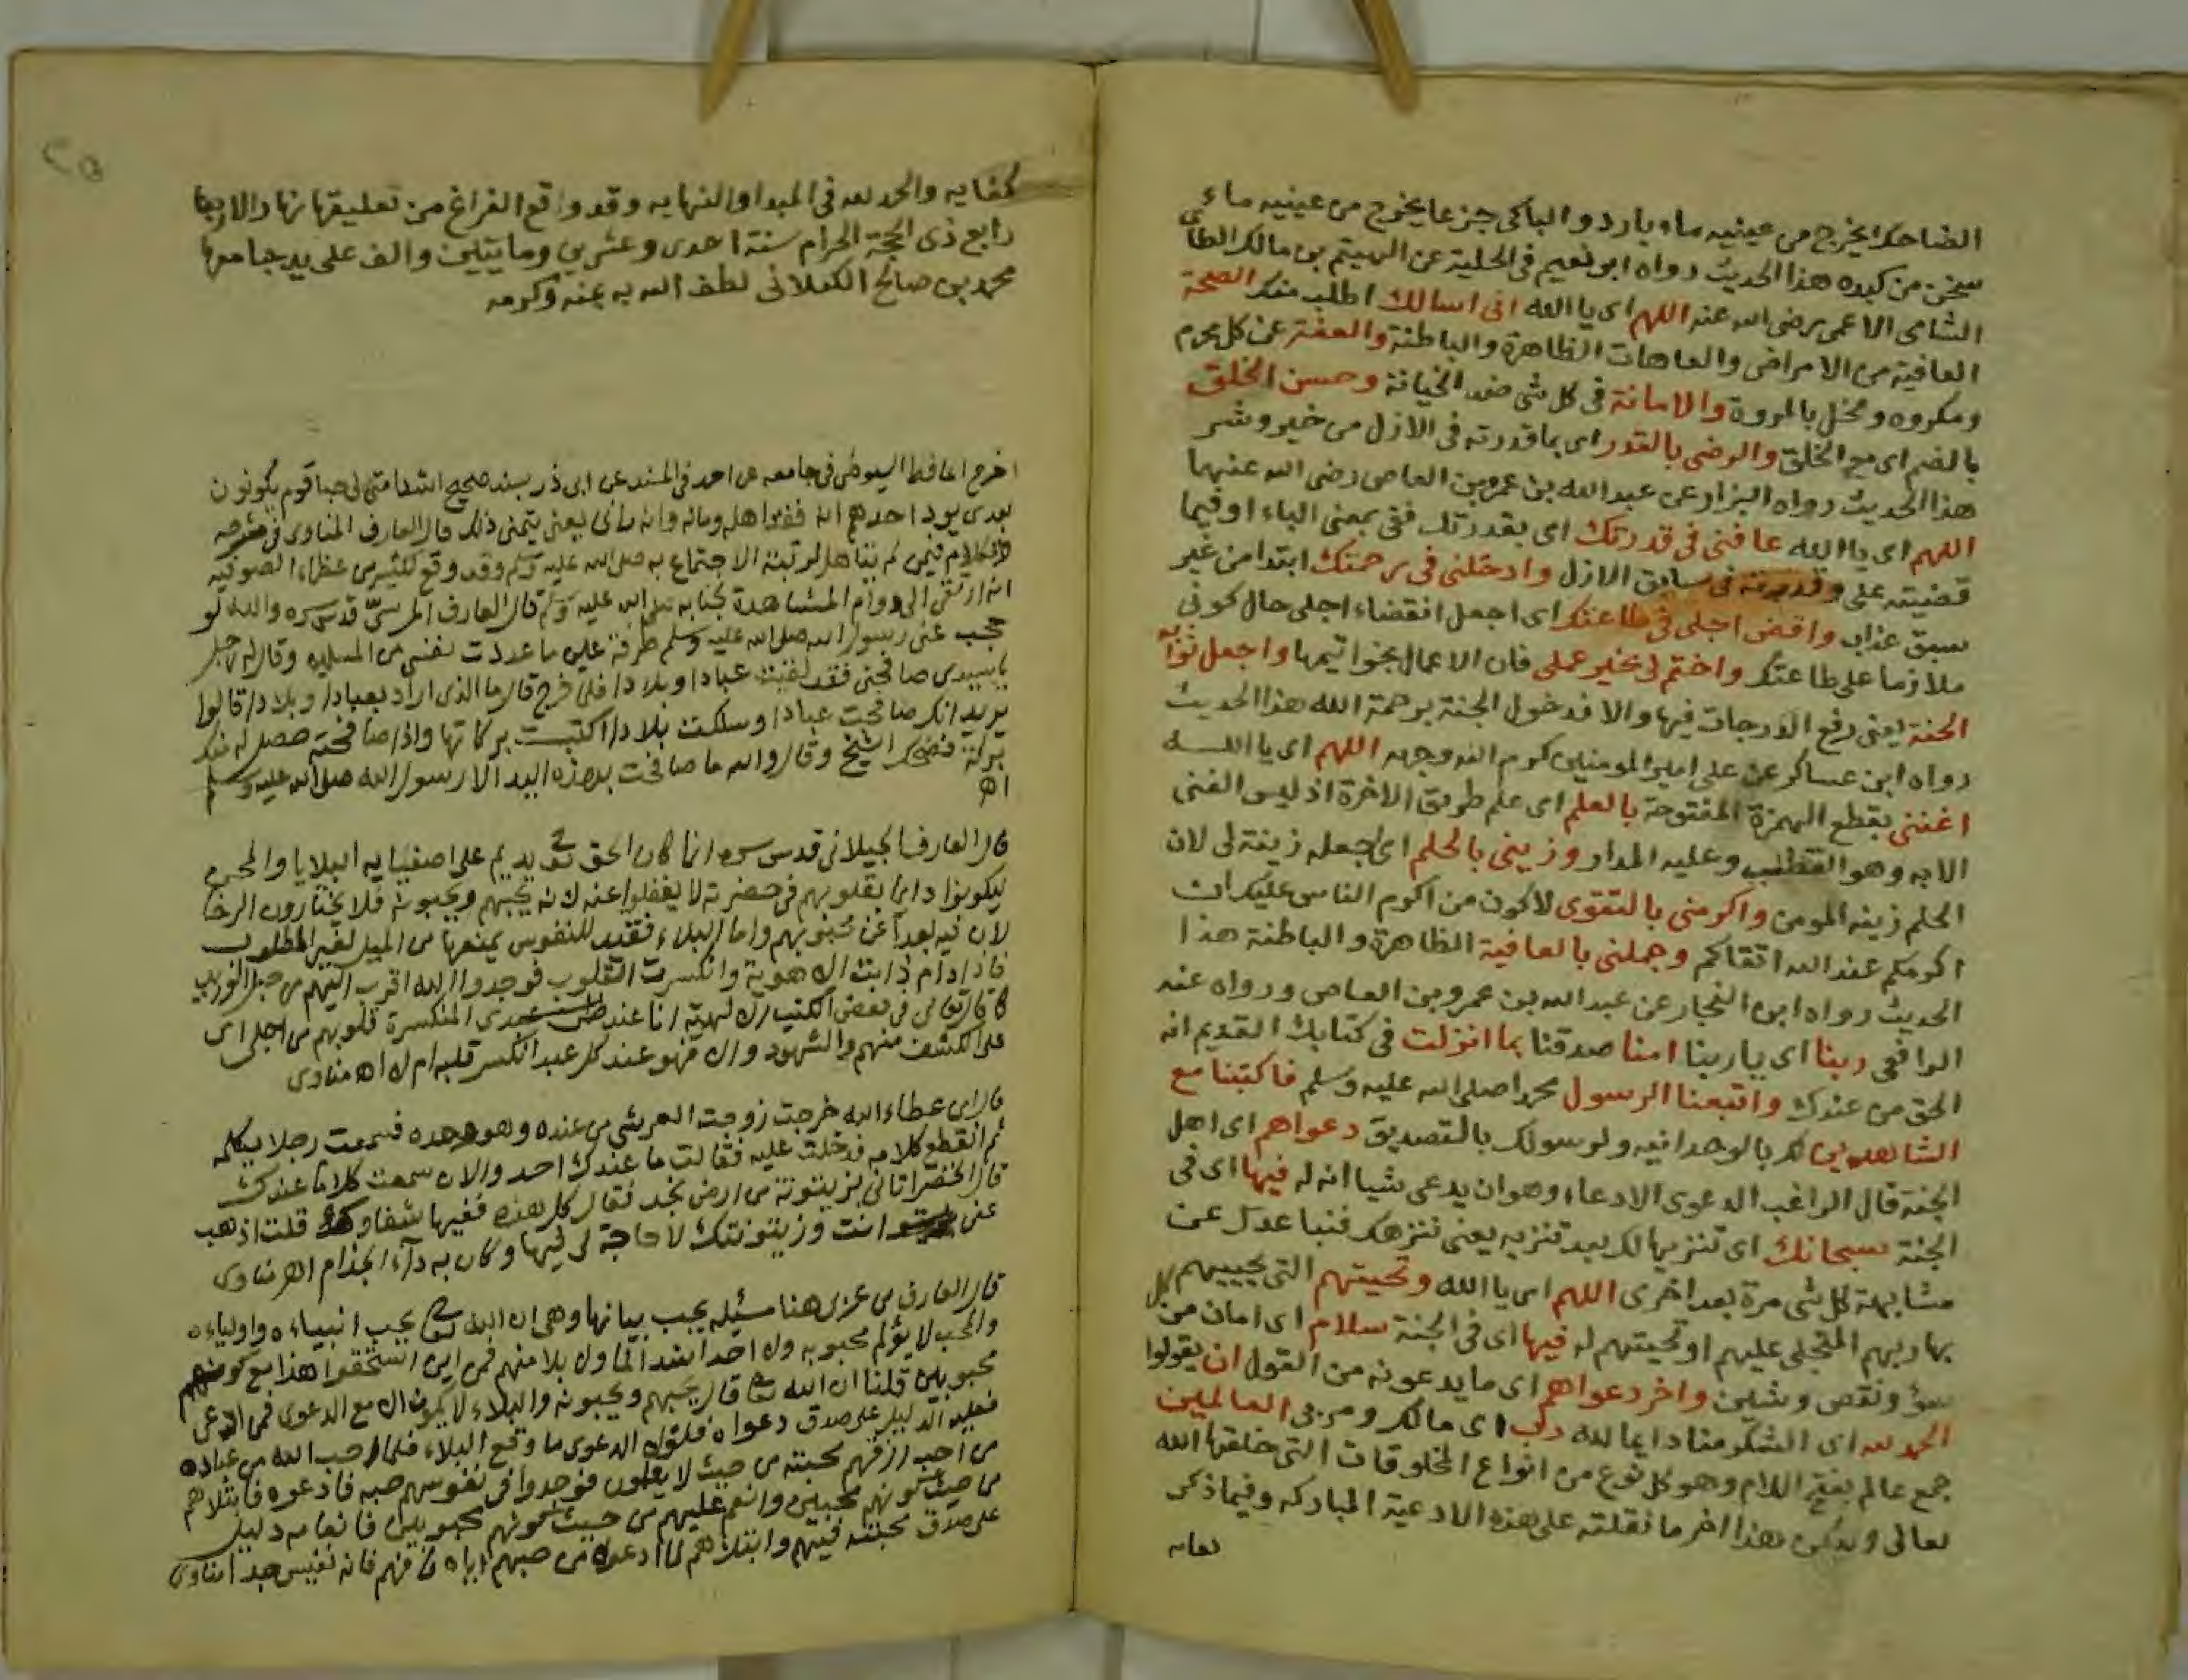 الضاحك يخرج من عينيه ماء بارد والباكي جزعا يخرج من عينيه ماء
سخن من كبده هذا الحديث رواه ابو نعيم في الحلية عن الهيتم بن مالك الطائي
الشامي الاعمى رضي الله عنه اللهم اي يا الله اني اسالك اطلب منك الصحة
العافية من الامراض والعاهات الظاهرة والباطنة والعفة عن كل محرم
ومكروه ومخل بالمروة والامانة في كل شي ضد الخيانة وحسن الخلق
بالضم اي مع الخلق والرضى بالقدر اي بما قدرته في الازل من خير وشر
هذا الحديث رواه البزار عن عبد الله بن عمرو بن العاص رضي الله عنهما
اللهم اي يا الله عافني في قدرتك اي بقدرتك ففي بمعنى الباء او فيما
قضيته علي وقدرته في سابق الازل وادخلني في رحمتك ابتدا من غير
سبق عذاب واقض اجلي في طاعتك اي اجعل انقضاء اجلي حال كوني
ملازما على طاعتك واختم لي بخير عملي فان الاعمال بخواتيمها واجعل ثوابه
الجنة يعني رفع الدرجات فيها والا فدخول الجنة برحمة الله هذا الحديث
رواه ابن عساكر عن علي امير المومنين كرم الله وجهه اللهم اي يا الله
اغنني بقطع الهمزة المفتوحة بالعلم اي علم طريق الاخرة اذ ليس الغنى
الا به وهو القطب وعليه المدار وزيني بالحلم اي اجعله زينة لي لان
الحلم زينه المومن واكرمني بالتقوى لاكون من اكرم الناس عليك ان
اكرمكم عند الله اتقاكم وجملني بالعافية الظاهرة والباطنة هذا
الحديث رواه ابن النجار عن عبد الله بن عمرو بن العاص ورواه عنه
الرافعي ربنا اي يا ربنا امنا صدقنا بما انزلت في كتابك القديم انه
الحق من عندك واتبعنا الرسول محمدا صلى الله عليه وسلم فاكتبنا مع
الشاهدين لك بالوحدانيه ولرسولك بالتصديق دعواهم اي اهل
الجنة قال الراغب الدعوى الادعاء وهو ان يدعي شيا انه له فيها اي في
الجنة سبحانك اي تنزيها لك بعد تنزيه يعني ننزهك فنباعدك عن
مشابهة كل شي مرة بعد اخرى اللهم اي يا الله وتحيتهم التي يحييهم
بها ربهم المتجلي عليهم او تحيتهم له فيها اي في الجنة سلام اي امان من كل
سؤ ونقص وشين واخر دعواهم اي ما يدعونه من القول ان يقولوا
الحمد لله اي الشكر منا دايما لله رب اي مالك ومربي العالمين
جمع عالم بفتح اللام وهو كل نوع من انواع المخلوقات التي خلقها الله
تعالى وليكن هذا اخر ما نقلته على هذه الادعية المباركه وفيما ذكر
كفايه
كفايه والحمد لله في المبدا والنهايه وقد واقع الفراغ من تعليقها نهار الاربعا
رابع ذي الحجة الحرام سنة احدى وعشرين ومايتين والف على يد جامعها
محمد بن صالح الكيلاني لطف الله به بمنه وكرمه
اخرج الحافظ السيوطي في جامعه عن احمد في المسند عن ابي ذر بسند صحيح اشد امتي لي حبا قوم يكونون
بعدي يود احدهم انه فقد اهله وماله وانه راني يعني يتمنى ذلك قال العارف المناوي في شرحه
والكلام فيمن لم يتاهل لرتبة الاجتماع به صلى الله عليه وسلم وقد وقع لكثير من عظماء الصوفيه
انه ارتقى الى دوام المشاهدة لجنابه صلى الله عليه وسلم قال العارف المرسي قدس سره والله لو
حجب عني رسول الله صلى الله عليه وسلم طرفة عين ما عددت نفسي من المسلمين وقال له رجل
يا سيدي صافحني فقد لقيت عبادا وبلادا فلما خرج قال ما الذي اراد بعبادا وبلادا قالوا
يريد انك صافحت عبادا وسلكت بلادا اكتسبت بركاتها واذا صافحته حصل له منك
بركة فضحك الشيخ وقال والله ما صافحت بهذه اليد الا رسول الله صلى الله عليه وسلم
اه
قال العارف الجيلاني قدس سره انما كان الحق تع يديم على اصفيايه البلايا والمحن
ليكونوا دايما بقلوبهم في حضرته لا يغفلوا عنه لانه يحبهم ويحبونه فلا يختارون الرخا
لان فيه بعدا عن محبوبهم واما البلاء فقيد للنفوس يمنعها من الميل لغير المطلوب
فاذا دام ذابت الاهوية وانكسرت القلوب فوجدوا الله اقرب اليهم من حبل الوريد
كما قال تعالى في بعض الكتب الالهية انا عند المنكسرة قلوبهم من اجلي اي
على الكشف منهم والشهود والا فهو عند كل عبد انكسر قلبه ام لا اه مناوي
قال ابن عطاء الله خرجت زوجت القرشي من عنده وهو وحده فسمعت رجلا يكلمه
ثم انقطع كلامه فدخلت عليه فقالت ما عندك احد والان سمعت كلاما عندك
قال الخضر اتاني بزيتونة من ارض نجد فقال كل هذه ففيها شفاوك قلت اذهب
عني انت وزيتونتك لا حاجة لي فيها وكان به داء الجذام اه مناوي
قال العارف بن عربي هنا مسئله يجب بيانها وهي ان الله تع يحب انبياءه واولياءه
والمحب لا يؤلم محبوبه ولا احد اشد الما ولا بلا منهم فمن اين استحقوا هذا مع كونهم
محبوبين قلنا ان الله تع قال يحبهم ويحبونه والبلاء لا يكون الا مع الدعوى فمن ادعى
فعليه الدليل على صدق دعواه فلولا الدعوى ما وقع البلاء فلما احب الله من عباده
من احب رزقهم محبته من حيث لا يعلمون فوجدوا في نفوسهم حبه فادعوه فابتلاهم
من حيث كونهم محبين وانعم عليهم من حيث كونهم محبوبين فانعامه دليل
على صدق محبته فيهم وابتلاهم لما ادعوه من حبهم اياه فافهم فانه نفيس جدا مناوي